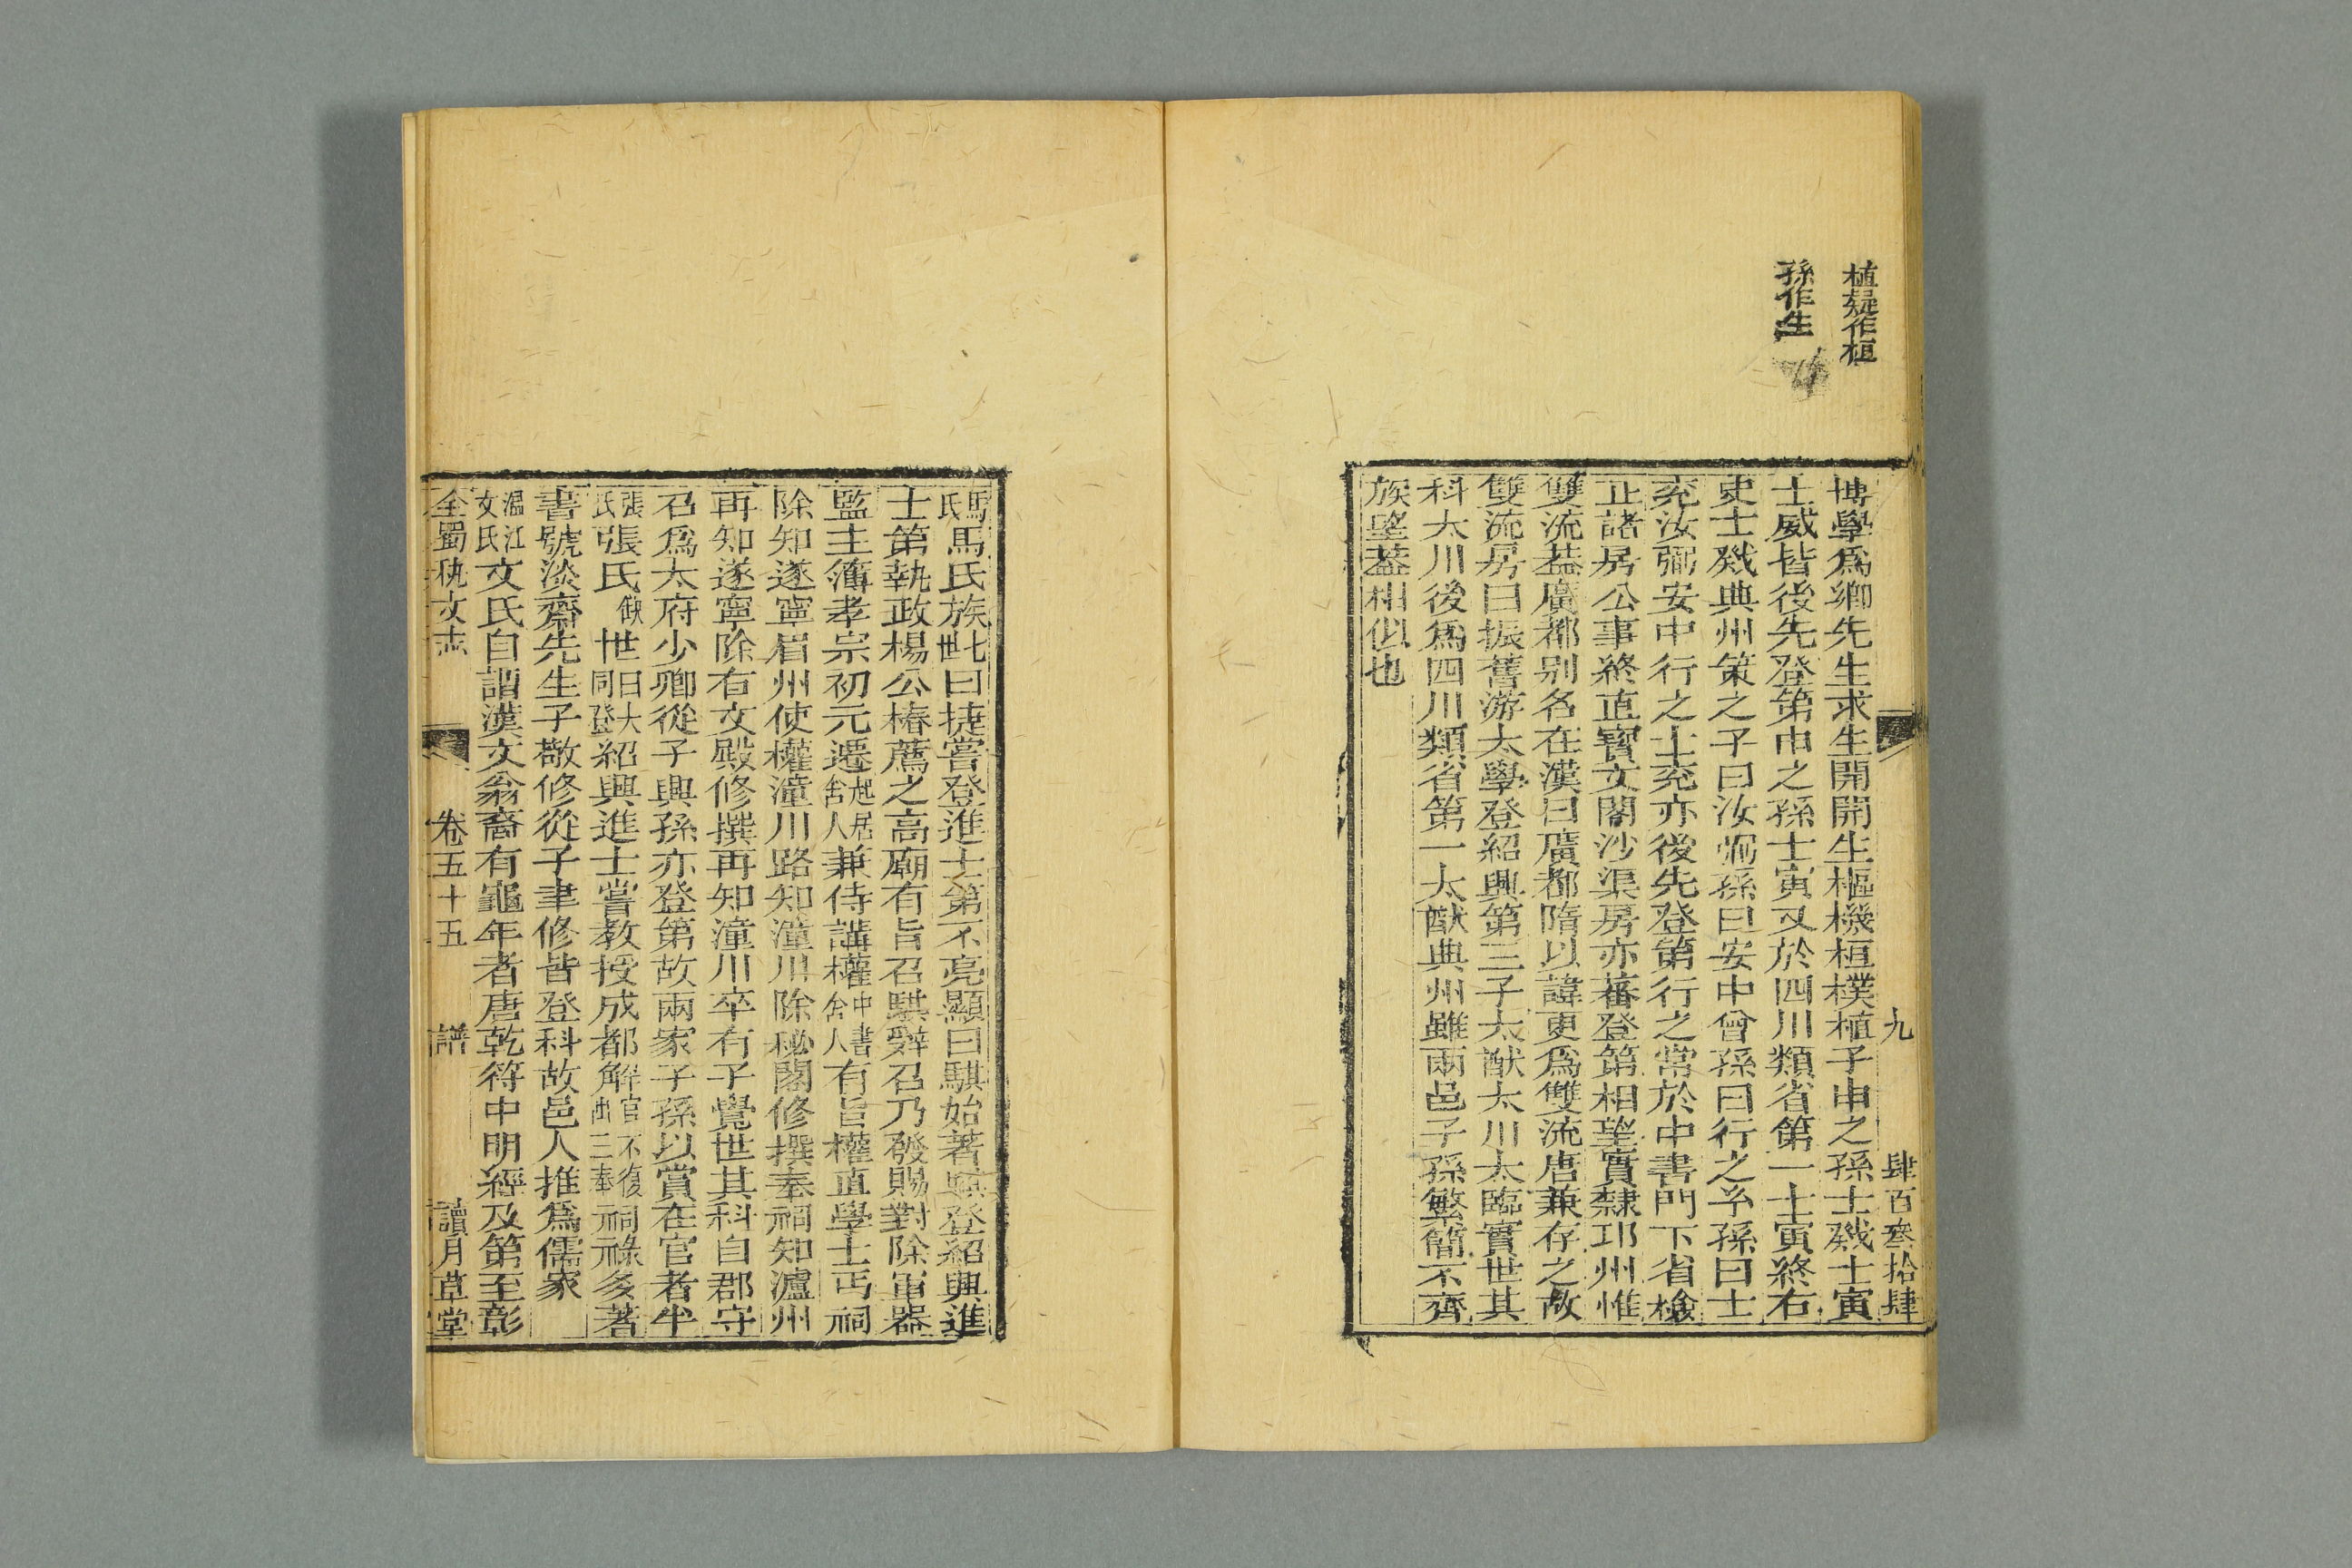 植疑作桓
孫作生
九
肆百叁拾肆
博學爲鄉先生求生開開生樞機桓樸植子申之孫士戣士寅
士威皆後先登第申之孫士寅又於四川類省第一士寅終右
史士戣典州策之子曰汝弼孫曰安中曾孫曰行之玄孫曰士
兖汝弼安中行之士兖亦後先登第行之常於中書門下省檢
正諸房公事終直寶文閣沙渠房亦蕃登第相望實隸邛州惟
雙流葢廣都别名在漢曰廣都隋以諱更爲雙流唐兼存之故
雙流房曰振舊游太學登紹興第三子太猷太川太臨實世其
科太川後爲四川類省第一太猷典州雖兩邑子孫繁簡不齊
族望葢相似也
馬氏馬氏族七世曰捷嘗登進士第不克顯曰騏始著騏登紹興進
士第執政楊公椿薦之高廟有旨召騏辭召乃發賜對除軍器
監主簿孝宗初元遷起居舍人兼侍講權中書舍人有旨權直學士丐祠
除知遂寧眉州使權潼川路知潼川除秘閣修撰奉祠知瀘州
再知遂寧除右文殿修撰再知潼川卒有子覺世其科自郡守
召爲太府少卿從子興孫亦登第故兩家子孫以賞在官者半
張氏張氏缺世曰大同登紹興進士嘗教授成都解官不復出三奉祠祿多著
書號淡齋先生子敬修從子聿修皆登科故邑人推爲儒家
温江文氏文氏自謂漢文翁裔有龜年者唐乾符中明經及第至彰
全蜀秇文志
卷五十五
譜
讀月草堂